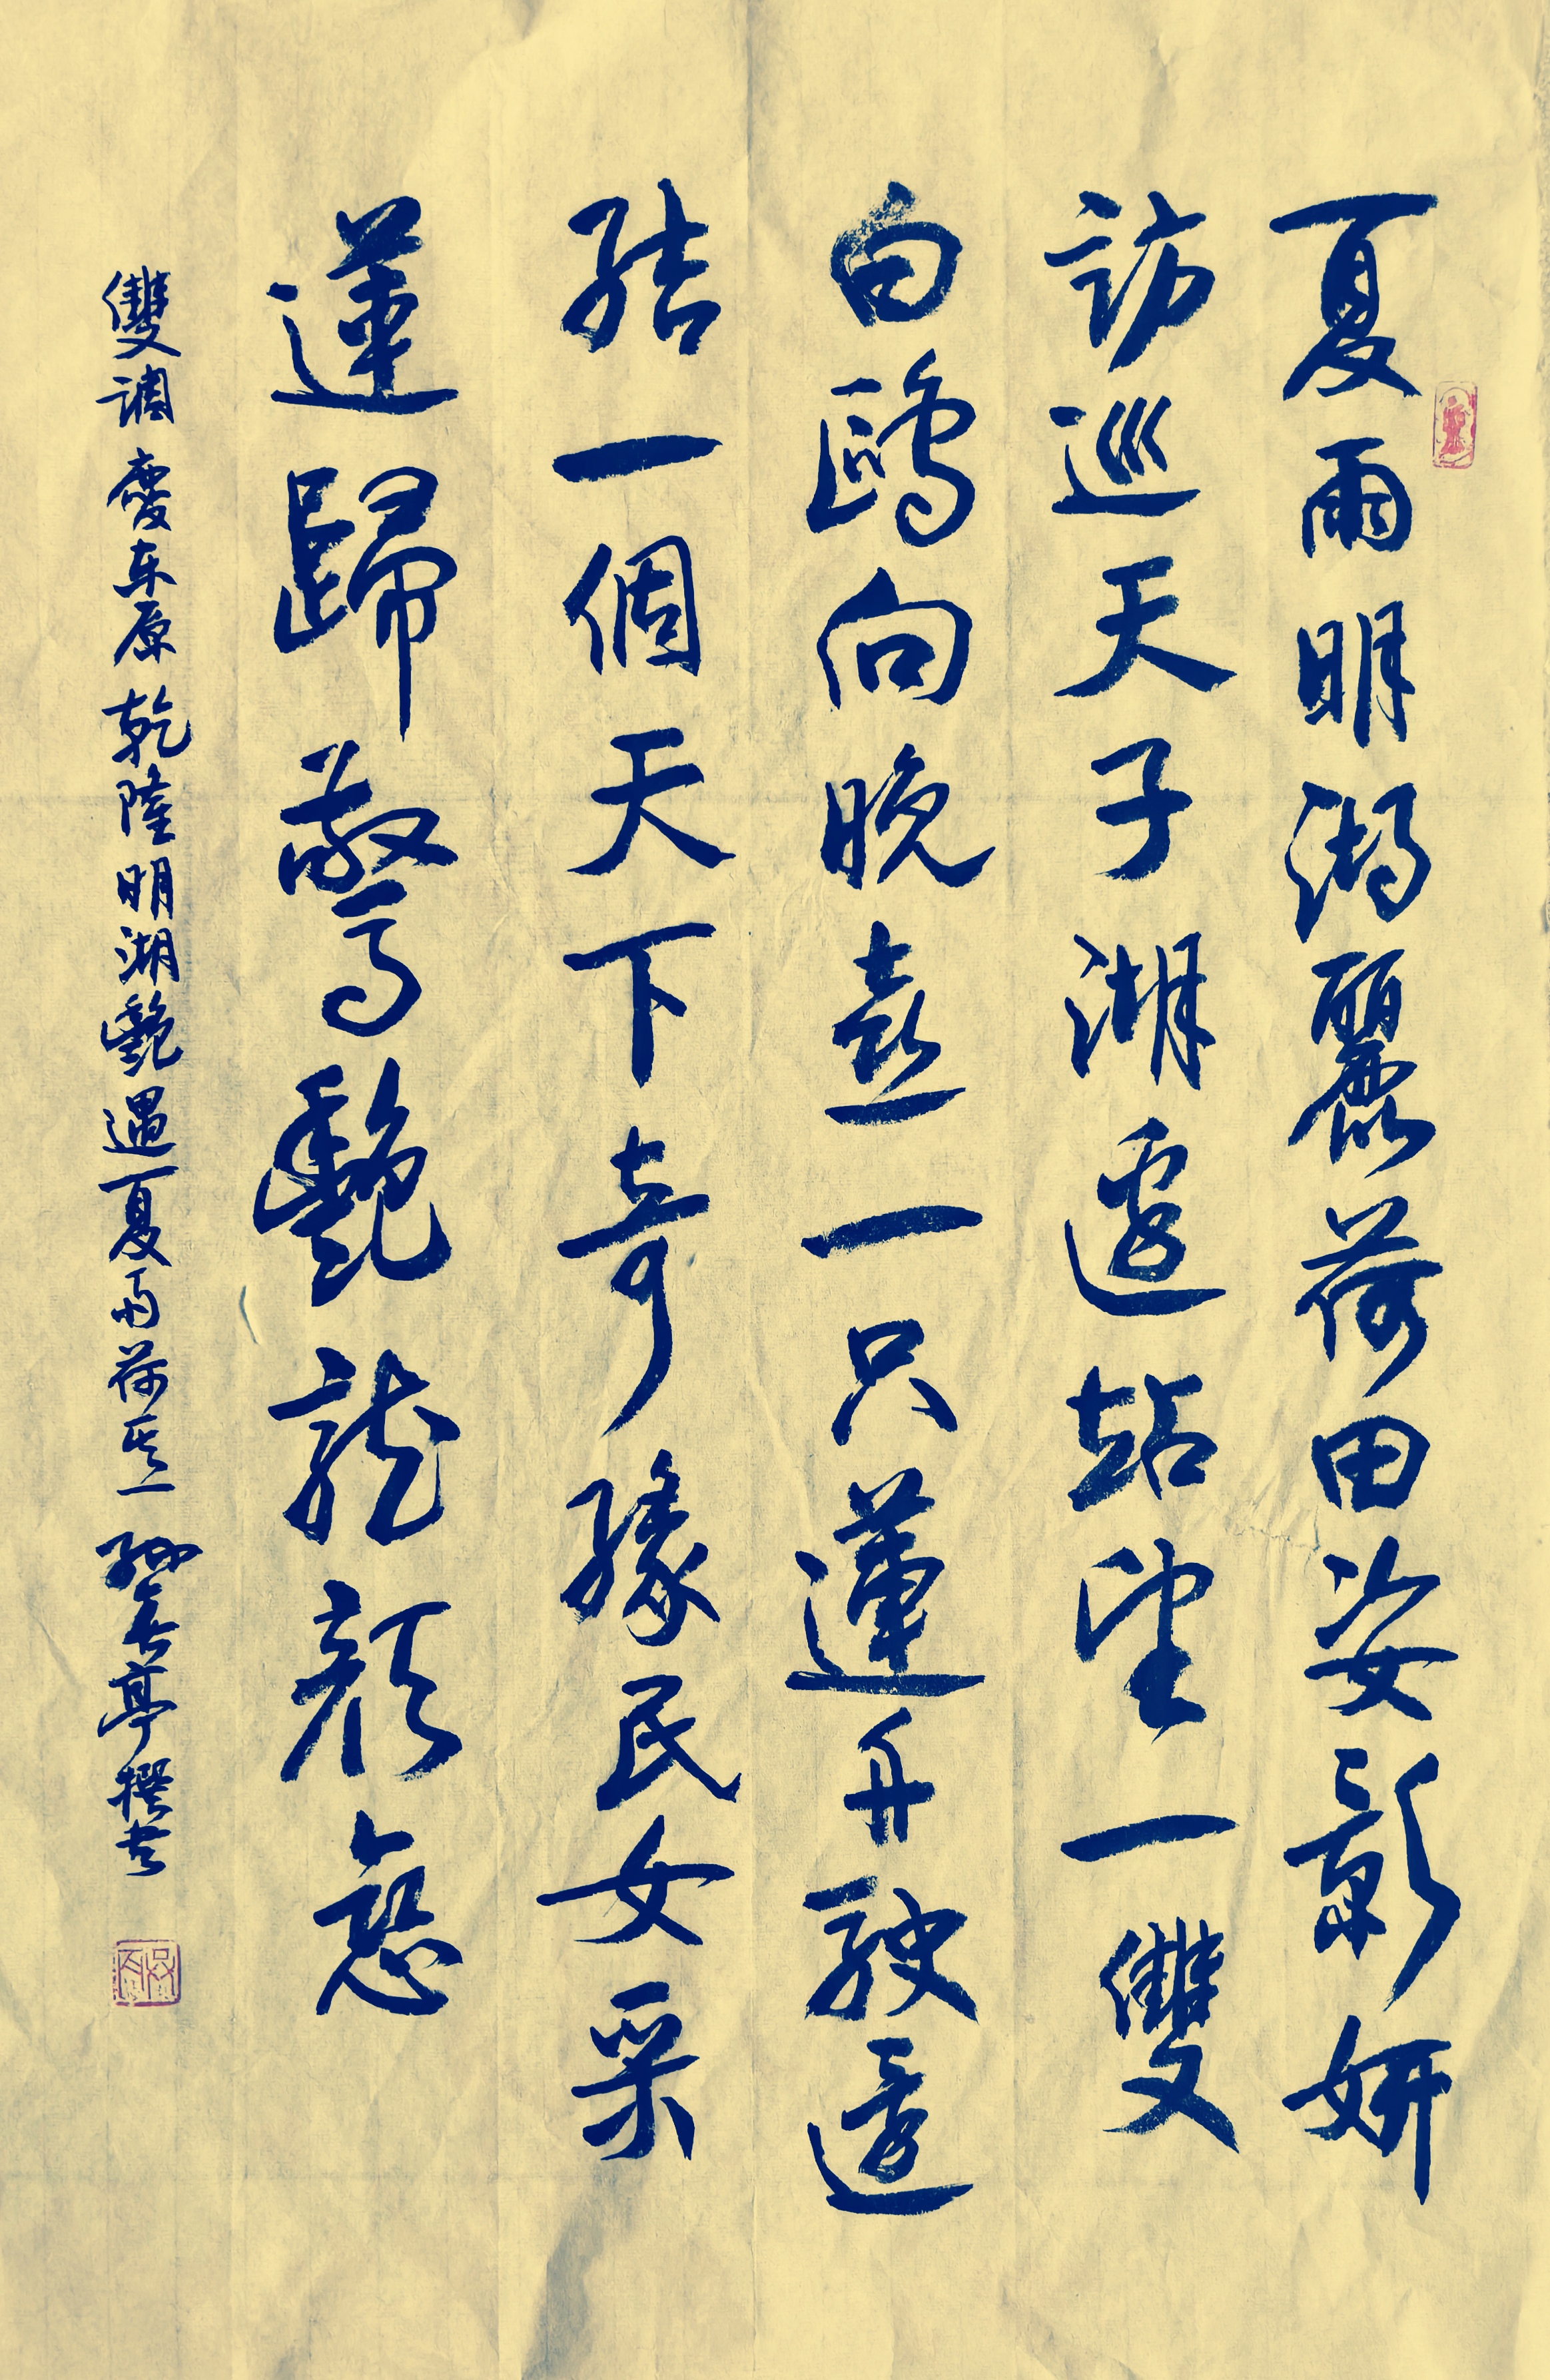 夏雨明湖麗荷田姿影妍
訪巡天子湖邊站望一雙
白鷗向晚喜一只蓮舟駛遠
結一個天下奇緣民女采
蓮歸驚艷龍顏戀
雙調 慶东原 乾隆明湖艷遇夏雨荷其一 孫亭撰书